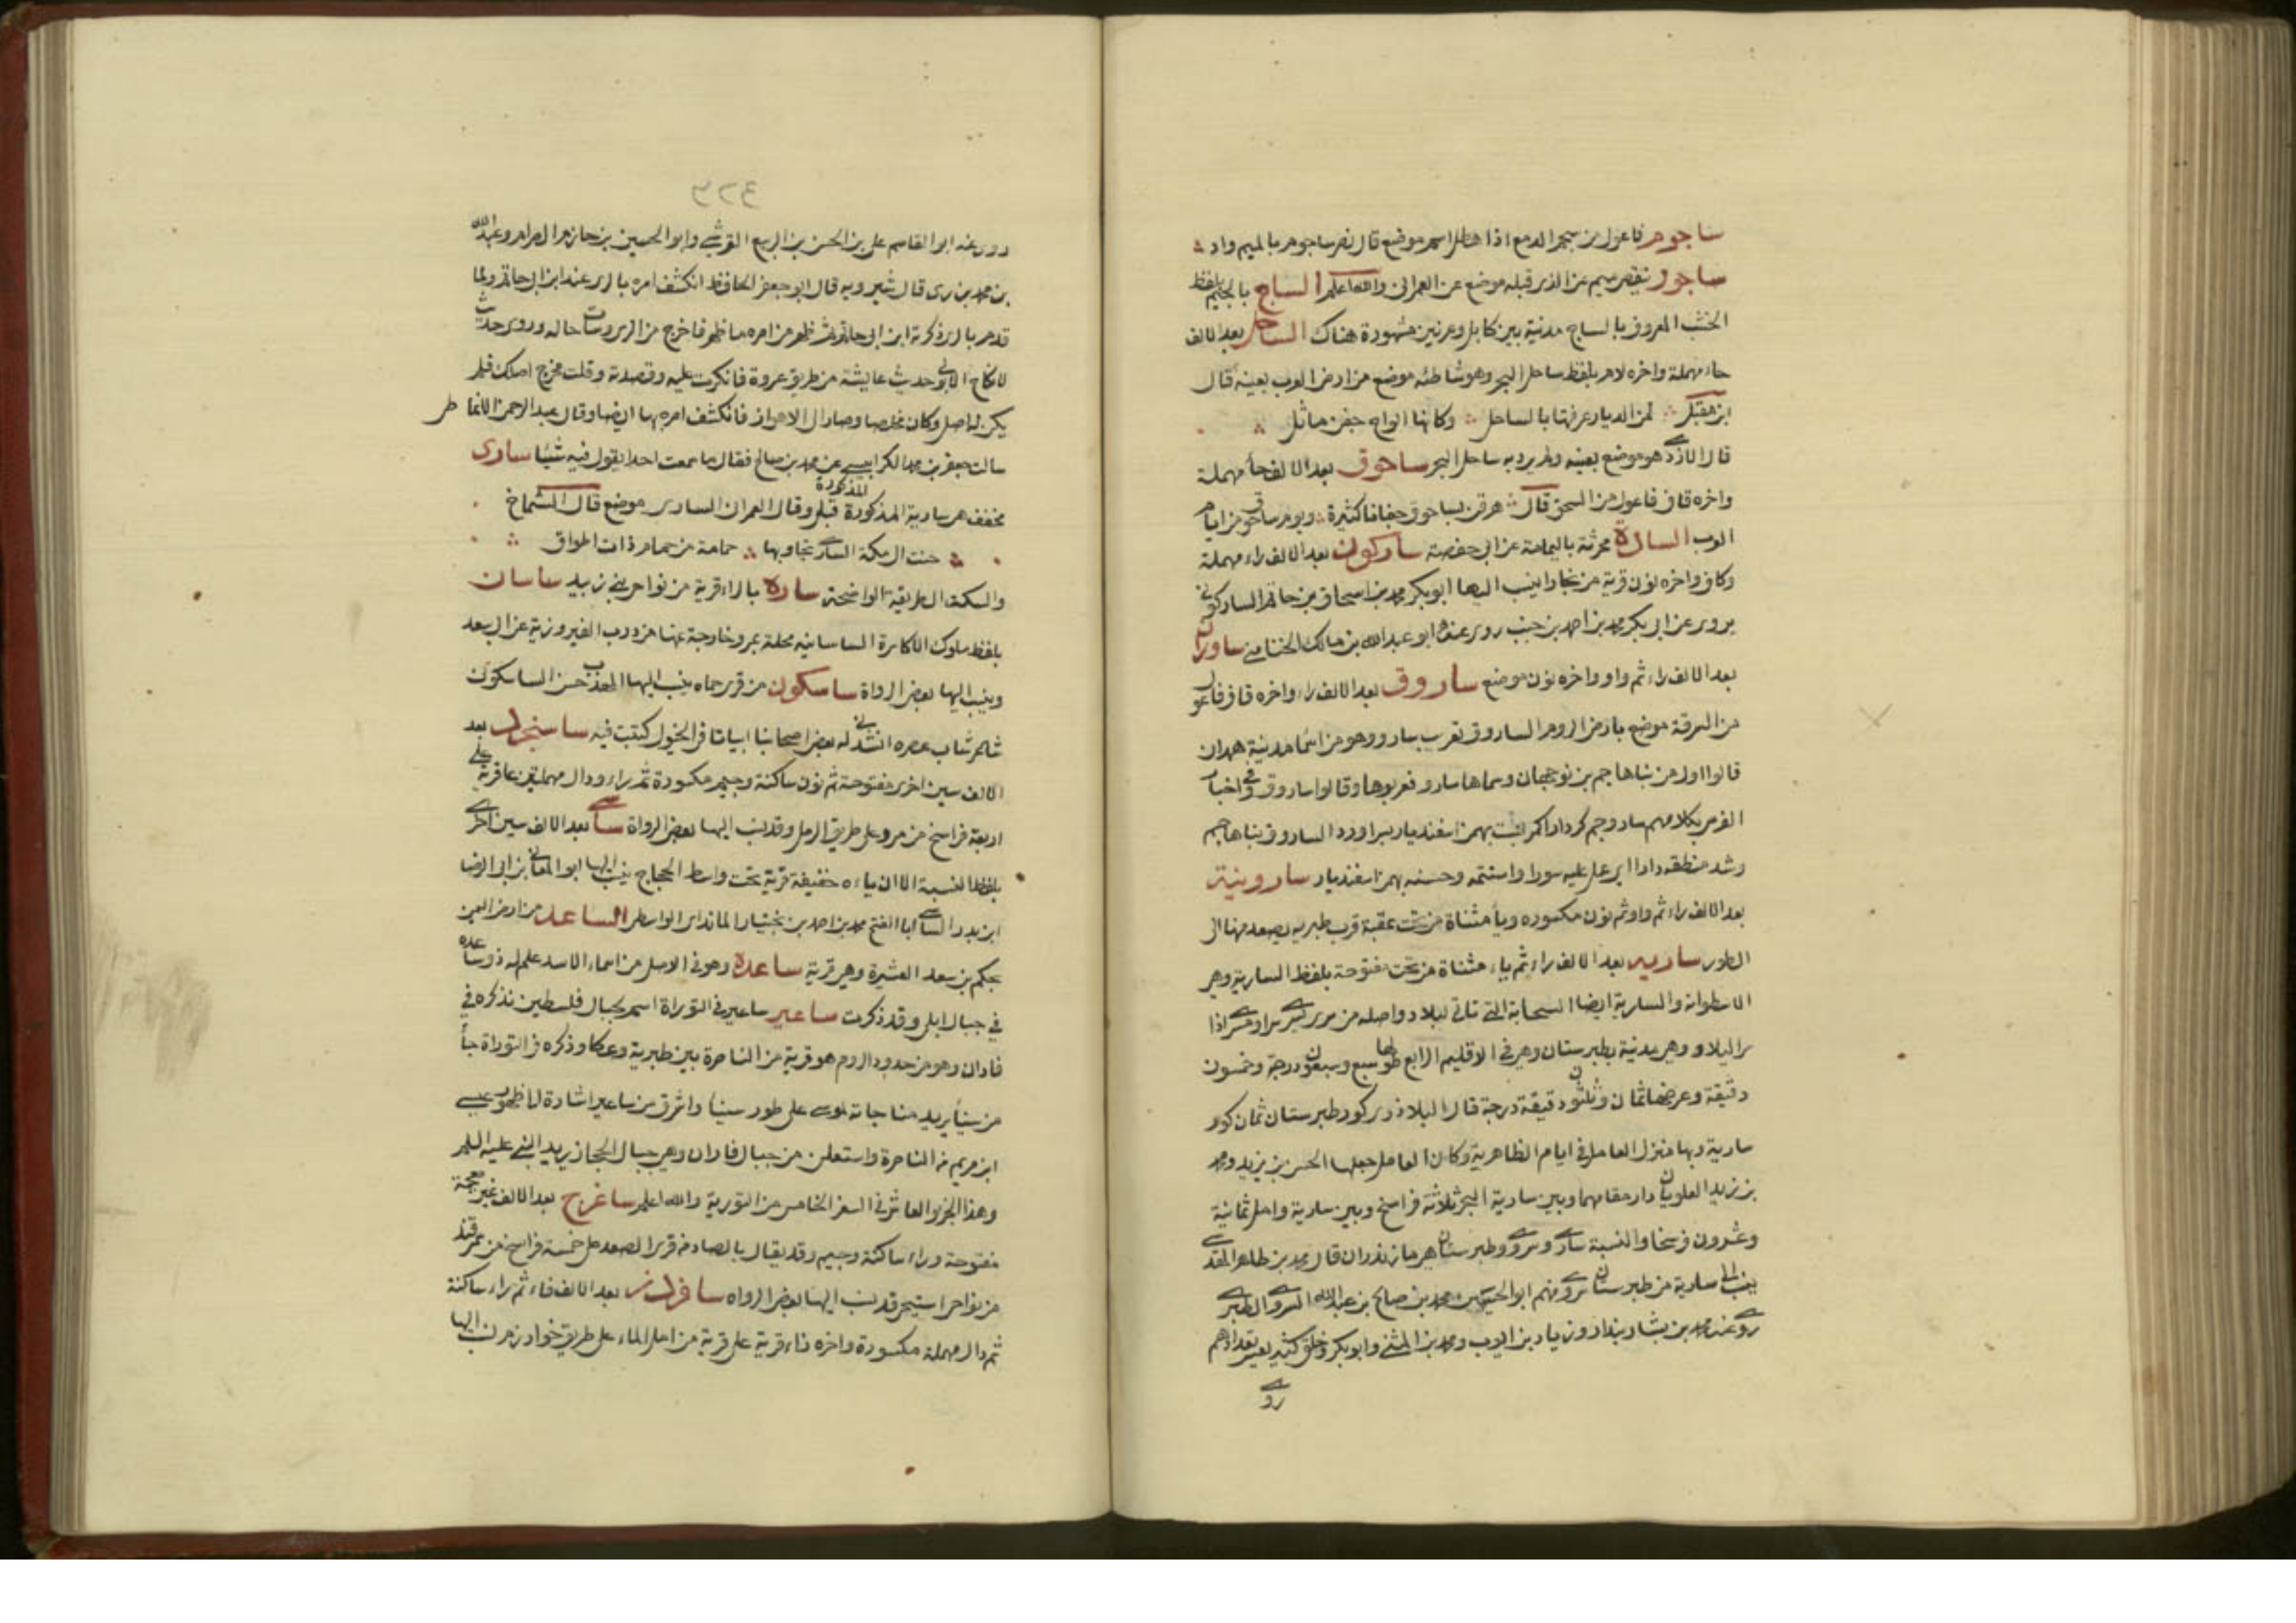 ساجوم فاعول من سجم الدمع اذا هطل اسم موضع قال نصر ساجوم بالميم واد
ساجو بنقص ميم عن الذي قبله موضع عن العمراني والله اعلم الساج بالجيم بلفظ
الخشب المعروف بالساج مدينة بين كابل وغزنين مشهورة هناك الساحل بعد الالف
حاء مهملة واخره لام بلفظ ساحل البحر وهو شاطئه موضع من ارض العرب بعينه قال
ابن مقبل لمن الديار عرفتها بالساحل وكانها الواح جفن ماثل
قال الازدي هو موضع بعينه ولم يرد به ساحل البحر ساحوق بعد الالف حاء مهملة
واخره قاف فاعول من السحق قال هرقن بساحوق جفانا كثيرة ويوم ساحوق من ايام
العرب السادة محرثة باليمامة عن ابي حفصة ساركون بعد الالف راء مهملة
وكاف واخره نون قرية من بخارا ينسب اليها ابو بكر محمد بن اسحاق بن حاتم الساركوني
يروى عن ابي بكر محمد بن احمد بن خنب روى عنه ابو عبد الله بن مالك الختامي ساوران
بعد الالف راء ثم واو واخره نون موضع ساروق بعد الالف راء واخره قاف فاعول
من السرقة موضع بارض الروم الساروق تعرب سارو وهو من اسماء مدينة همدان
قالوا اول من بناها جم بن نوجهان وسماها سارو فعربوها وقالوا ساروق وفي اخبار
الفرس بكلامهم سارو جم كرد دارا كمر بست بهمن اسفنديار بسر اورد الساروق بناها جم
وشد منطقه دارا اي عمل عليه سورا واستتمه وحسنه بهمن اسفنديار سارونية
بعد الالف راء ثم واو ثم نون مكسوره وياء مثناة من تحت عقبة قرب طبريه يصعد منها الى
الطور ساريه بعد الالف راء ثم ياء مثناة من تحت مفتوحة بلفظ السارية وهي
الاسطوانة والسارية ايضا السحابة التي تاتي ليلا واصله من سرى يسرى سرا ومسرى اذا
سرا ليلا وهي مدينة بطبرستان وهي في الاقليم الرابع طولها سبع وسبعون درجة وخمسون
دقيقة وعرضها ثمان وثلثون دقيقة درجة قال البلاذري كور طبرستان ثمان كور
سارية وبها منزل العامل في ايام الظاهرية وكان العامل جعلها الحسن بن يزيد ومحمد
بن زيد العلويان دار مقامهما وبين سارية البحر ثلاثة فراسخ وبين سارية وامل ثمانية
وعشرون فرسخا والنسبة ساري وسروي وطبرستان هي مازندران قال محمد بن طاهر المقدسي
ينسب الى سارية من طبرستان سروي منهم ابو الحسين محمد بن صالح بن عبد الله السروي الطبري
روى عنه محمد بن بشار بندار وزياد بن ايوب ومحمد بن المثنى وابو بكر وخلق كثير يعسر تعدادهم
روى
٤٢٣
روى عنه ابو القاسم علي بن الحسن بن الربيع القرشي وابو الحسين بن حازم الصرام وعبد الله
بن محمد بن ري قال شيرويه قال ابو جعفر الحافظ انكشف امره بالري عند ابن ابي حاتم ولما
قدم بالري ذكرته ابن ابي حاتم ظهر من امره ما ظهر فاخرج من الري وساءت حاله وروى حديث
لا نكاح الا بولي حديث عايشة من طريق عروة فانكرت عليه وقصدته وقلت مخرج اصلك فلم
يكن له اصل وكان مخلصا وصار الى الاهواز فانكشف امره بها ايضا وقال عبد الرحمن الانماطي
سالت جعفر بن محمد الكرابيسي عن محمد بن صالح فقال ما سمعت احدا يقول فيه شيئا ساوى
مخفف هي سارية المذكورة قبل وقال العمراني الساري موضع قال الشماخ
حنت الى مكة الساري تجاوبها حمامة من حمام ذات اطواق
والسكت الى طريقة الواضحة سارة بالراء قرية من نواحي بني زبيد ساسان
بلفظ ملوك الاكاسرة الساسانيه محلة بمرو خارجة عنها من درب الفيروزية عن ابي سعد
وينسب اليها بعض الرواة ساسكون من قرى حماه ينسب اليها المهذب حسن الساسكوني
شاعر شاب عصره انشدني له بعض اصحابنا ابياتا في الخول كتبت فيه ساسنجرد بعد
الالف سين اخرى مفتوحة ثم نون ساكنة وجيم مكسورة ثم راء ودال مهملتين قرية على
اربعة فراسخ من مرو على طريق الرمل وقد نسب اليها بعض الرواة ساسي بعد الالف سين اخرى
بلفظ النسبة الا ان ياءه خفيفة قرية تحت واسط الحجاج ينسب اليها ابو المعالي بن ابي الرضا
ابن بدر الساسي ابا الفتح محمد بن احمد بن بختيار المانداي الواسطي الساعد من ارض اليمن
بحكم بن سعد العشيرة وهي قرية ساعدة وهو في الاصل من اسماء الاسد علم له ذو ساعده
في جبال ابلى وقد ذكرت ساعير ساعير في التوراة اسم لجبال فلسطين نذكره في
فاران وهو من حدود الروم هو قرية من الناصرة بين طبرية وعكا وذكره في التوراة جاء
من سيناء يريد مناجاته لموسى على طور سيناء واشرق من ساعير اشارة لظهور عيسى
ابن مريم من الناصرة واستعلن من جبال فاران وهي جبال الحجاز يريد النبي عليه السلم
وهذا الجزء والعاشر في السفر الخامس من التورية والله اعلم ساغرج بعد الالف غين معجمة
مفتوحة وراء ساكنة وجيم وقد يقال بالصاد من قرى الصغد على خمسة فراسخ من سمرقند
من نواحي استيخن قد نسب اليها بعض الرواه سافردز بعد الالف فاء ثم راء ساكنة
ثم دال مهملة مكسورة واخره زاء قرية على قرية من امل الماء على طريق خوارزم نسب اليها